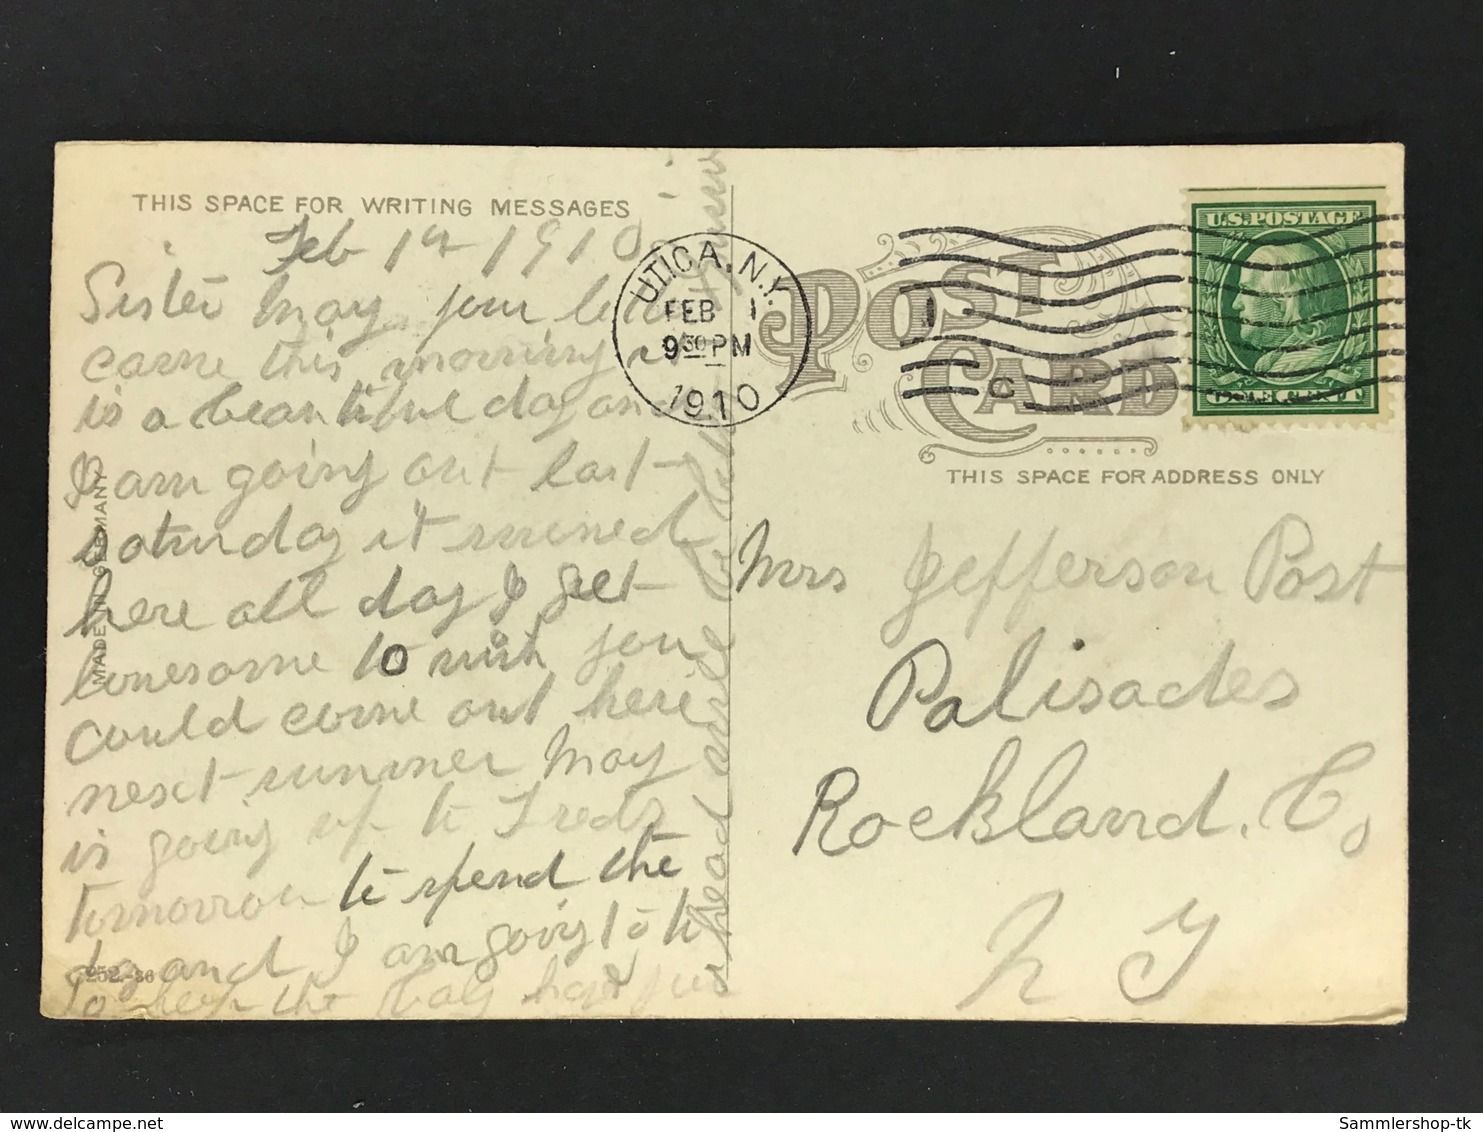 THIS SPACE FOR WRITING MESSAGES
Feb 1st 1910
Sister May your
came this morning
is a beautiful day and
I am going out last
saturday it rained
here all day I get
lonesome to wish you
could come out here
next summer May
is going up to Freds
tomorrow to spend the
day and I am going to
to keep the baby
head
MADE IN GERMANY
252.-36
UTICA, N.Y.
FEB 1
9 30 PM
1910
1
C
POST CARD
U.S. POSTAGE
THIS SPACE FOR ADDRESS ONLY
Mrs Jefferson Post
Palisades
Rockland. Co,
N Y
delcampe.net
Sammlershop-tk